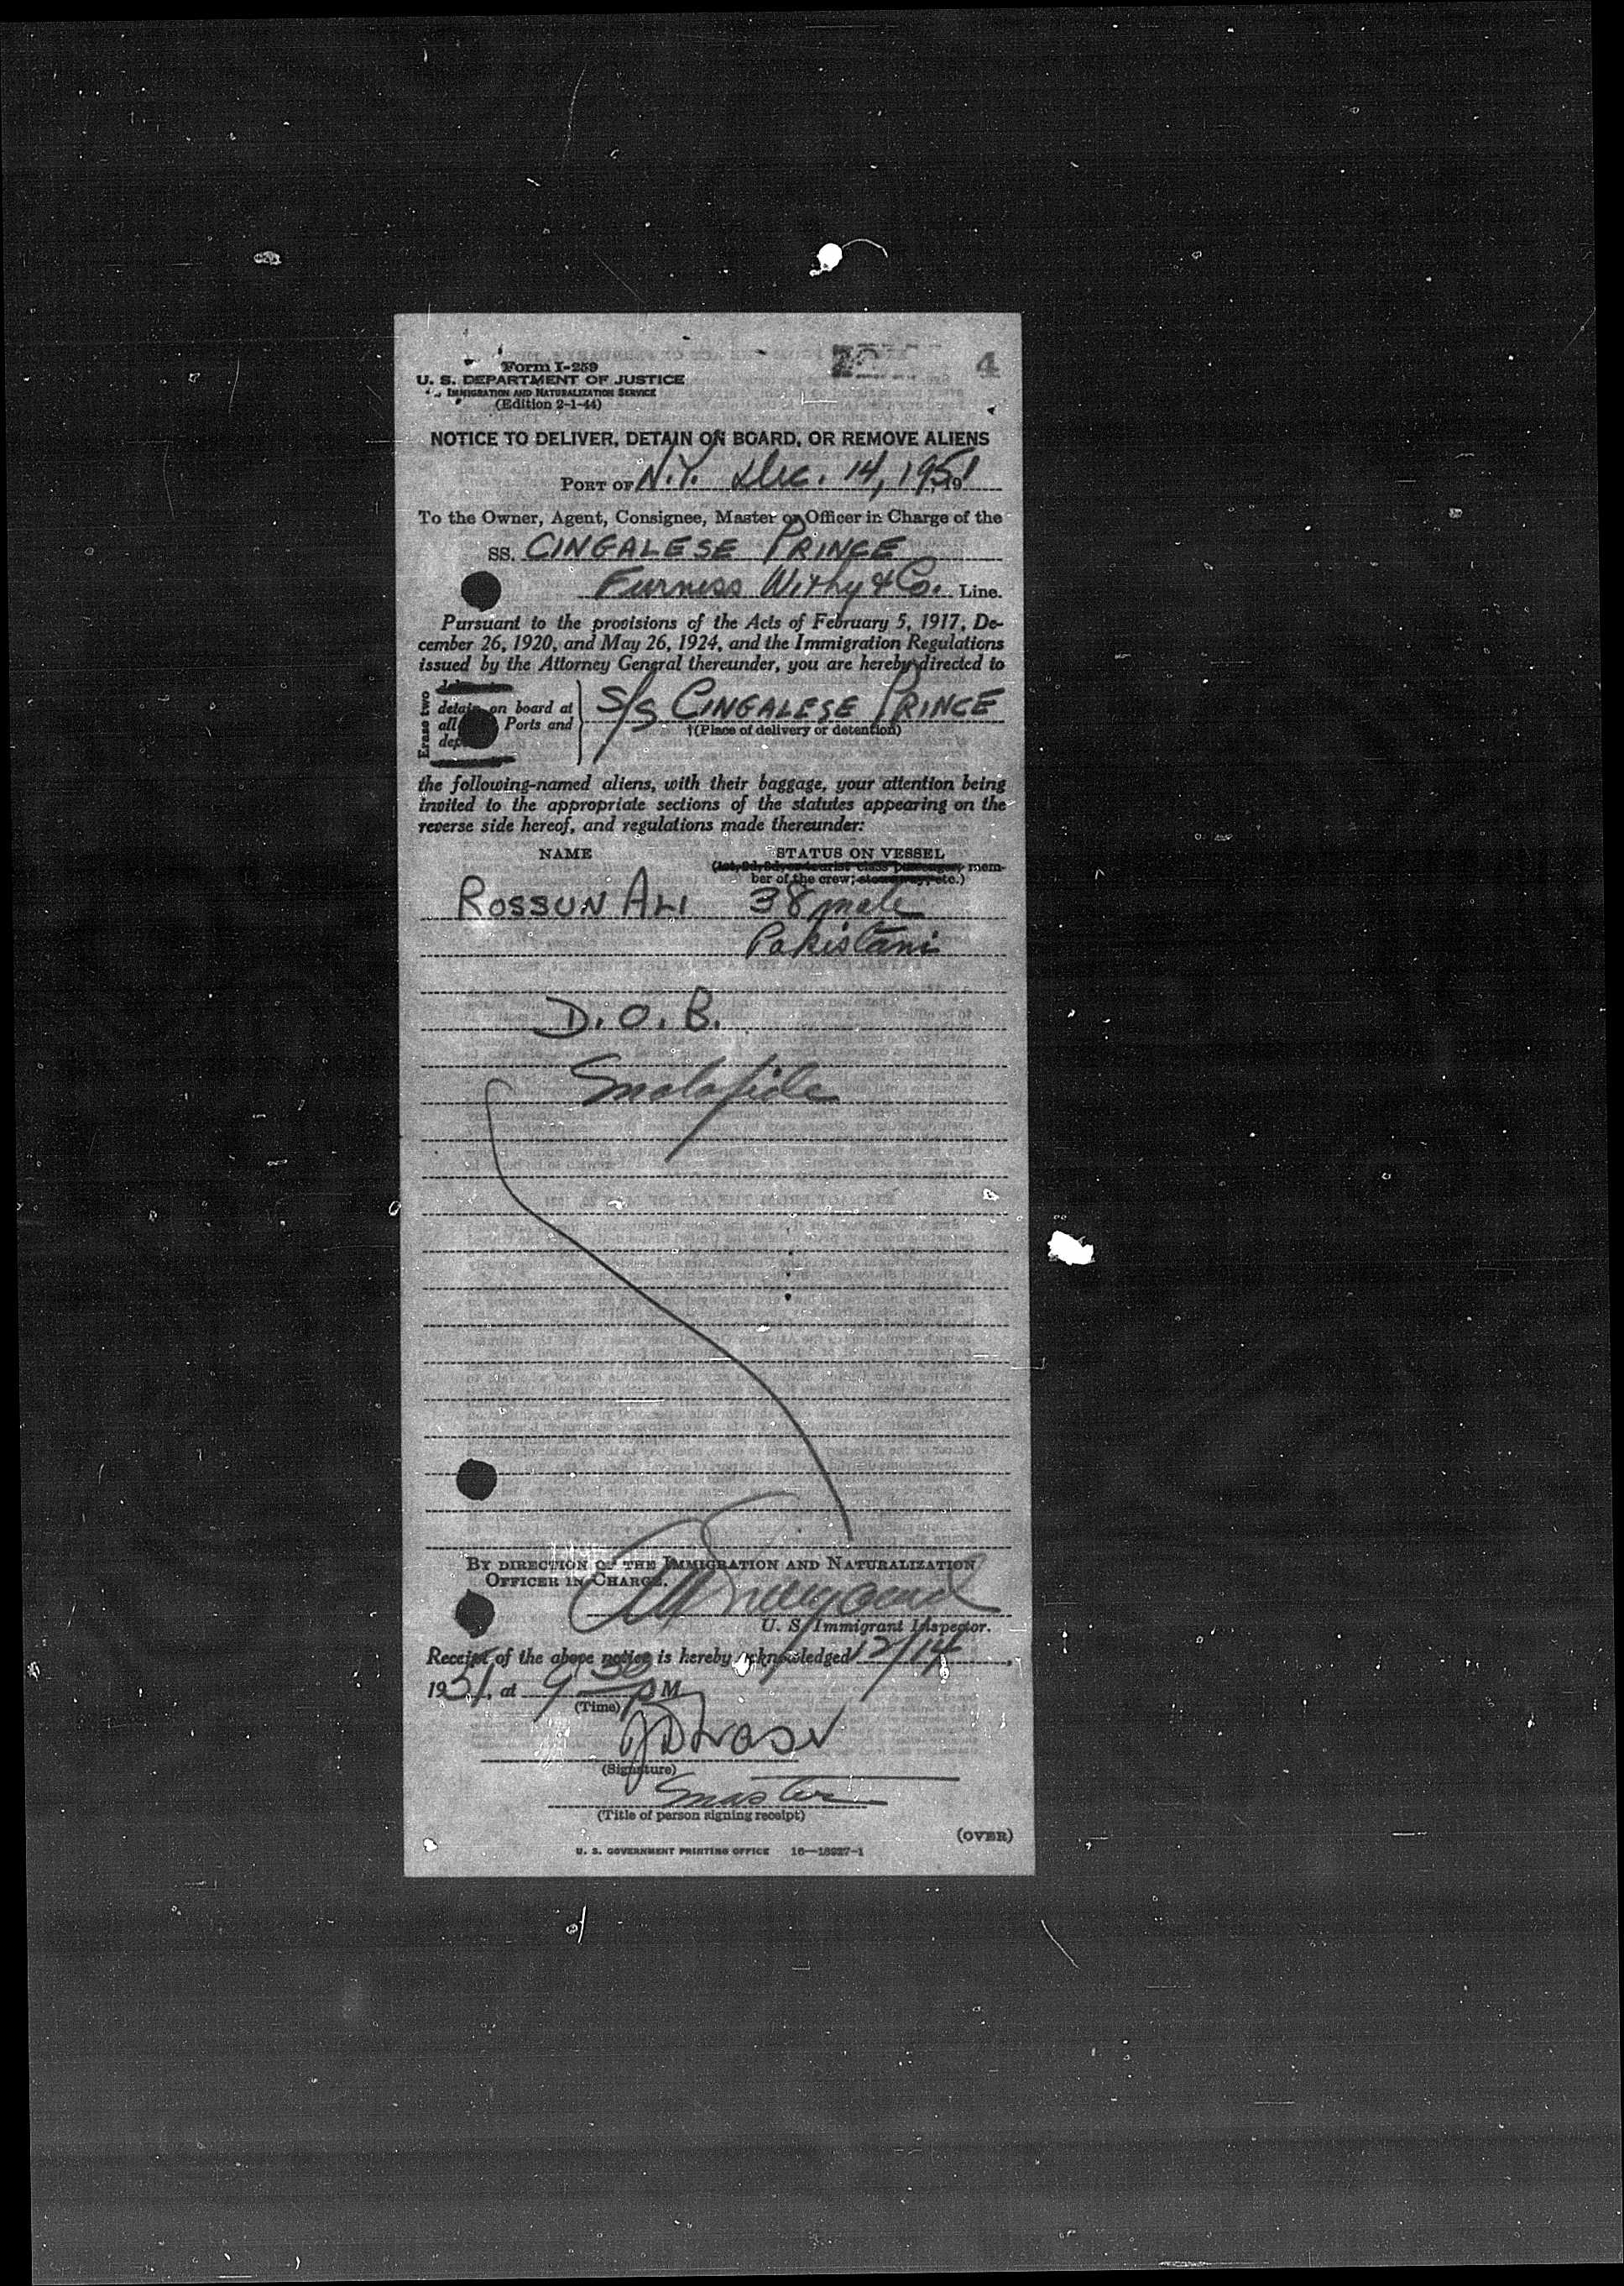 4
Form I-259
U. S. DEPARTMENT OF JUSTICE
IMMIGRATION AND NATURALIZATION SERVICE
(Edition 2-1-44)
NOTICE TO DELIVER, DETAIN ON BOARD, OR REMOVE ALIENS
PORT OF N.Y. Dec. 14, 1951, 19
To the Owner, Agent, Consignee, Master or Officer in Charge of the
SS. CINGALESE PRINCE
Furness Withy & Co. Line.
Pursuant to the provisions of the Acts of February 5, 1917, De-
cember 26, 1920, and May 26, 1924, and the Immigration Regulations
issued by the Attorney General thereunder, you are hereby directed to
Erase two
detain on board at
all Ports and
S/S CINGALESE PRINCE
(Place of delivery or detention)
the following-named aliens, with their baggage, your attention being
invited to the appropriate sections of the statutes appearing on the
reverse side hereof, and regulations made thereunder:
NAME STATUS ON VESSEL
(1st, 2d, 3d, or tourist class passenger, mem-
ber of the crew; stowaway, etc.)
ROSSUN ALI 38 male
Pakistani
D. O. B.
Malafide
BY DIRECTION OF THE IMMIGRATION AND NATURALIZATION
OFFICER IN CHARGE.
U. S. Immigrant Inspector.
Receipt of the above notice is hereby acknowledged 12/14,
1951, at 9 30 P M
(Time)
(Signature)
Master
(Title of person signing receipt)
(OVER)
U. S. GOVERNMENT PRINTING OFFICE 16—18927-1